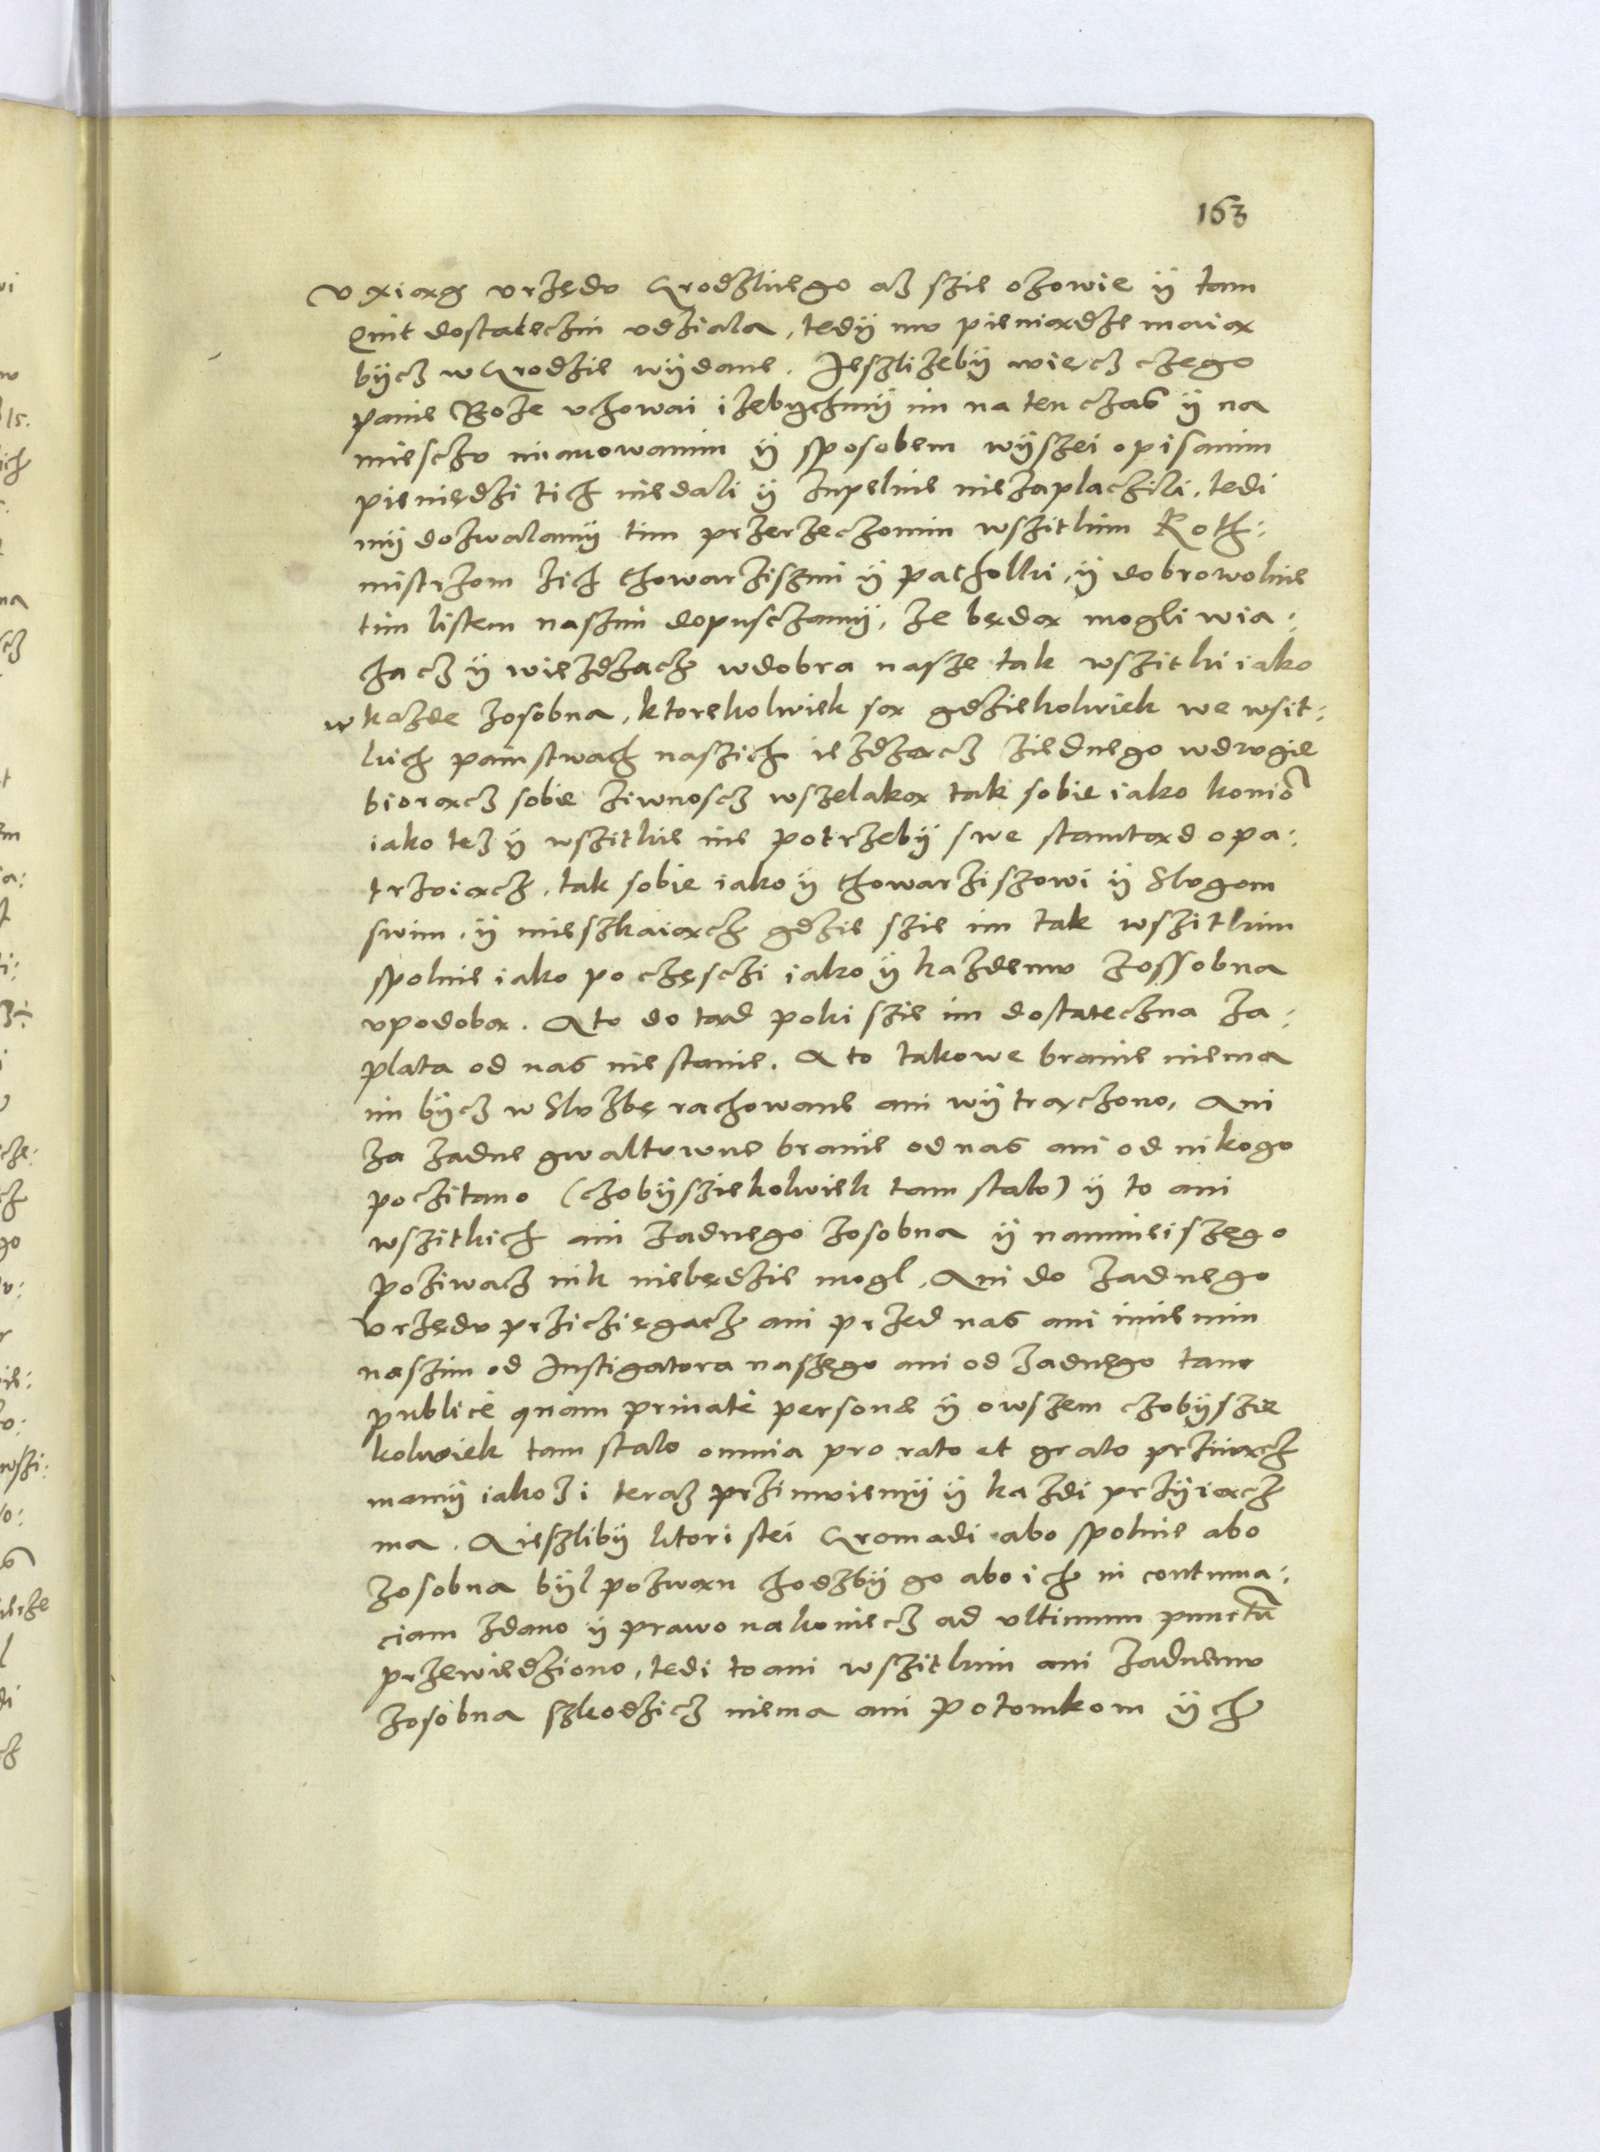 163
v xiąg vrzędv Grodzkiego az szie ozowie ÿ tam
Quit dostateczni vdziala, tedÿ mv pieniądze maią
bÿcz w Grodzie wÿdane. Jeszlizebÿ więcz czego
panie Boze vchowai izebÿchmÿ im na ten czas ÿ na
mieschv mianowanim ÿ sposobem wÿszei opisanim
pieniędzi tich niedali ÿ zupelnie niezaplaczili, tedi
mÿ dozwalamÿ tim przerzeczonim wszitkim Roth:
mistrzom zich thowarziszmi ÿ pacholki, ÿ dobrowolnie
tim listem naszim dopusczamÿ, ze będą mogli wia:
chacz ÿ wiezdzach wdobra nasze tak wszitki iako
w kazde zosobna, ktorekolwiek są gdziekolwiek we wsit:
kich painstwach naszich iezdząncz ziednego wdrvgie
biorącz sobie ziwnoscz wszelaką tak sobie iako koniō
iako tez ÿ wszitkie ine potrzebÿ swe stamtąd opa:
trzviącz, tak sobie iako ÿ thowarziszowi ÿ Slvgom
swim, ÿ mieszkaiącz gdzie szie im tak wszitkim
spolnie iako po częsczi iako ÿ kazdemv zossobna
vpodoba. A to do tąd poki szie im dostateczna za:
plata od nas niestanie. A to takowe branie niema
im bÿcz w Slvzbę rachowane ani wÿtrączono, Ani
za zadne gwaltowne branie od nas ani od nikogo
pochitano (chobÿsziekolwiek tam stalo) ÿ to ani
wszitkich ani zadnego zosobna ÿ namnieiszego
poziwacz nik niebędzie mogl, Ani do zadnego
vrzędv prziczięgach ani przed nas ani imienim
naszim od Instigatora naszego ani od zadnego tam
publice quam priuate persone ÿ owszem chobÿszie
kolwiek tam stalo omnia pro rato et grato prziiącz
mamÿ iakozi teraz przimviemÿ ÿ kazdi przÿiącz
ma. A ieszlibÿ ktori stei Gromadi abo spolnie abo
zosobna bÿl pozwan chodzbÿ go abo ich in contuma:
ciam zdano ÿ prawo nakoniecz ad vltimum punctū
przewiedziono, tedi to ani wszitkim ani zadnemv
zosobna szkodzicz niema ani potomkom ÿch